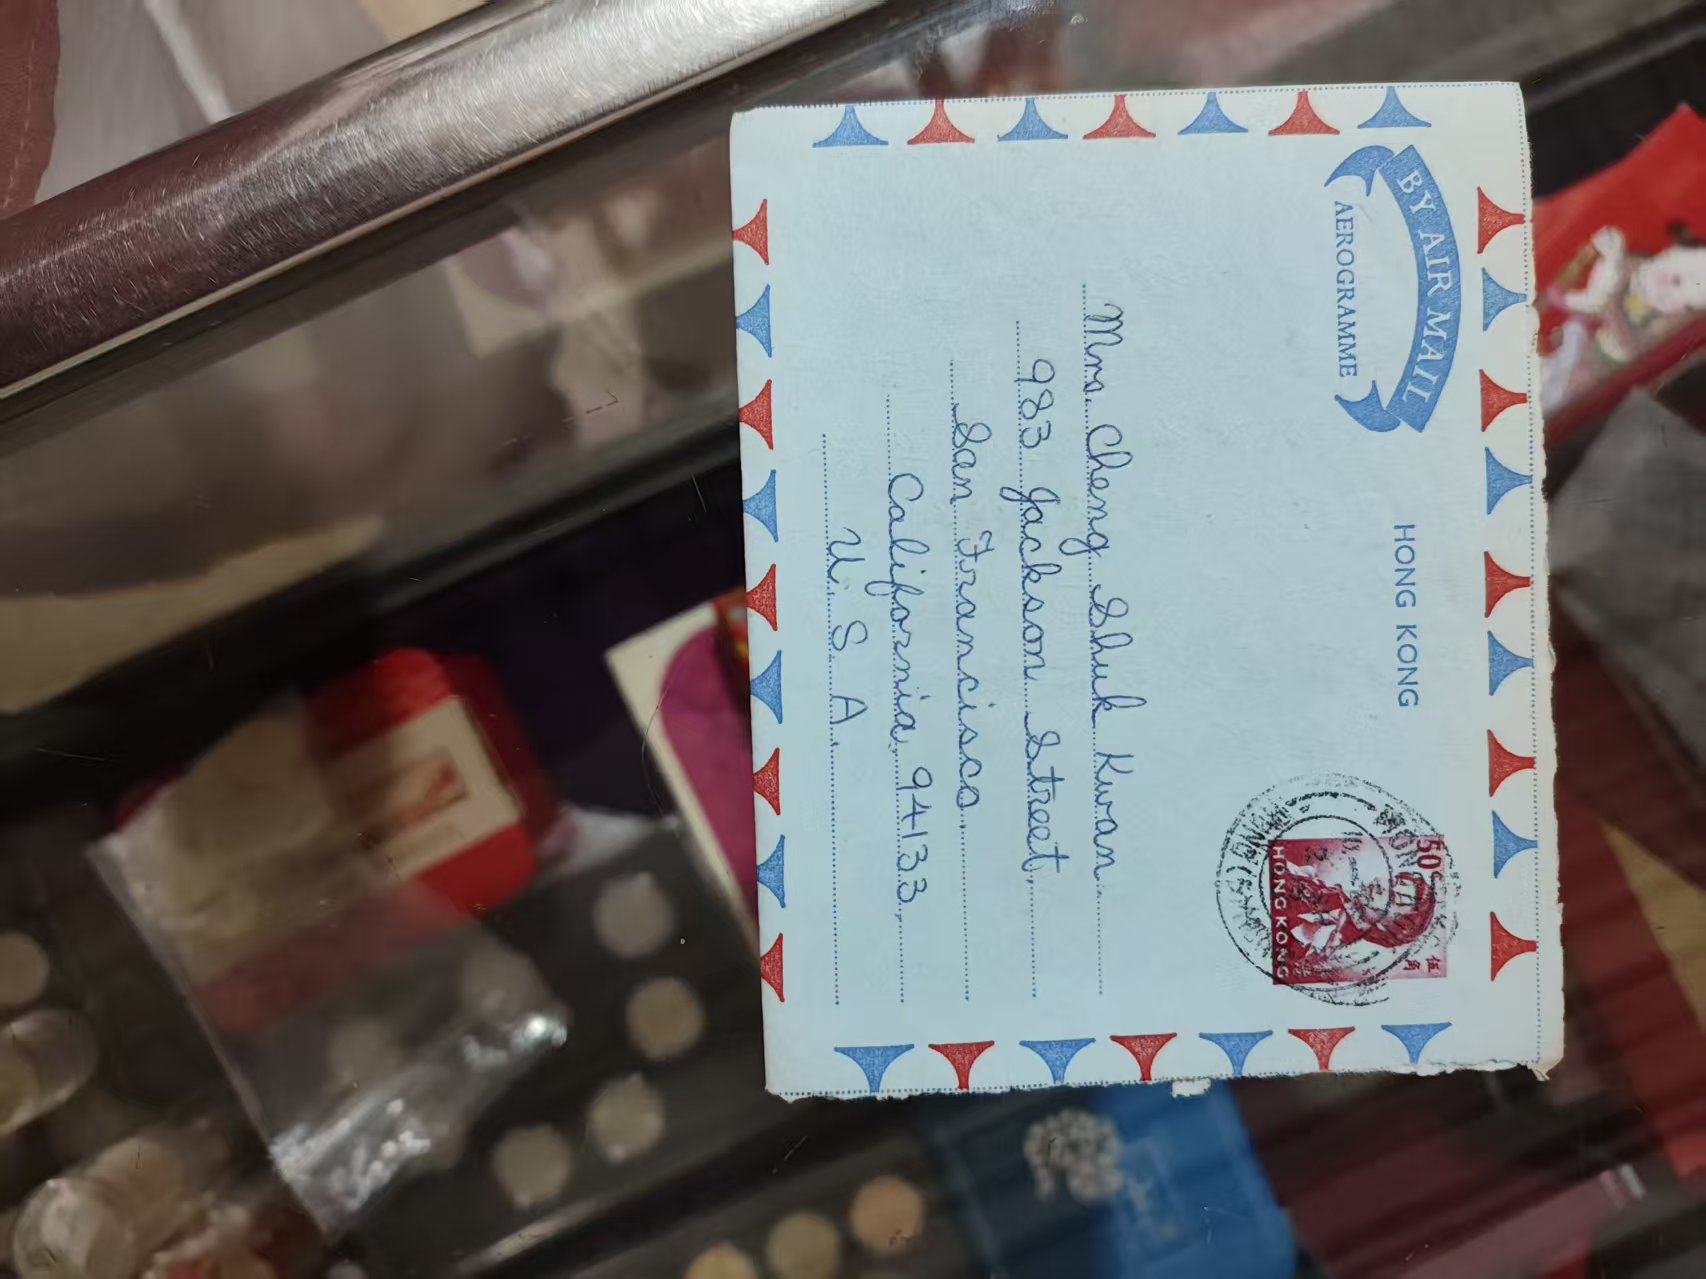 BY AIR MAIL
AEROGRAMME
HONG KONG
50c
伍
角
HONG KONG
HONG KONG
Mrs. Cheng Shuk Kwan
983 Jackson Street,
San Francisco,
California, 94133,
U. S. A.